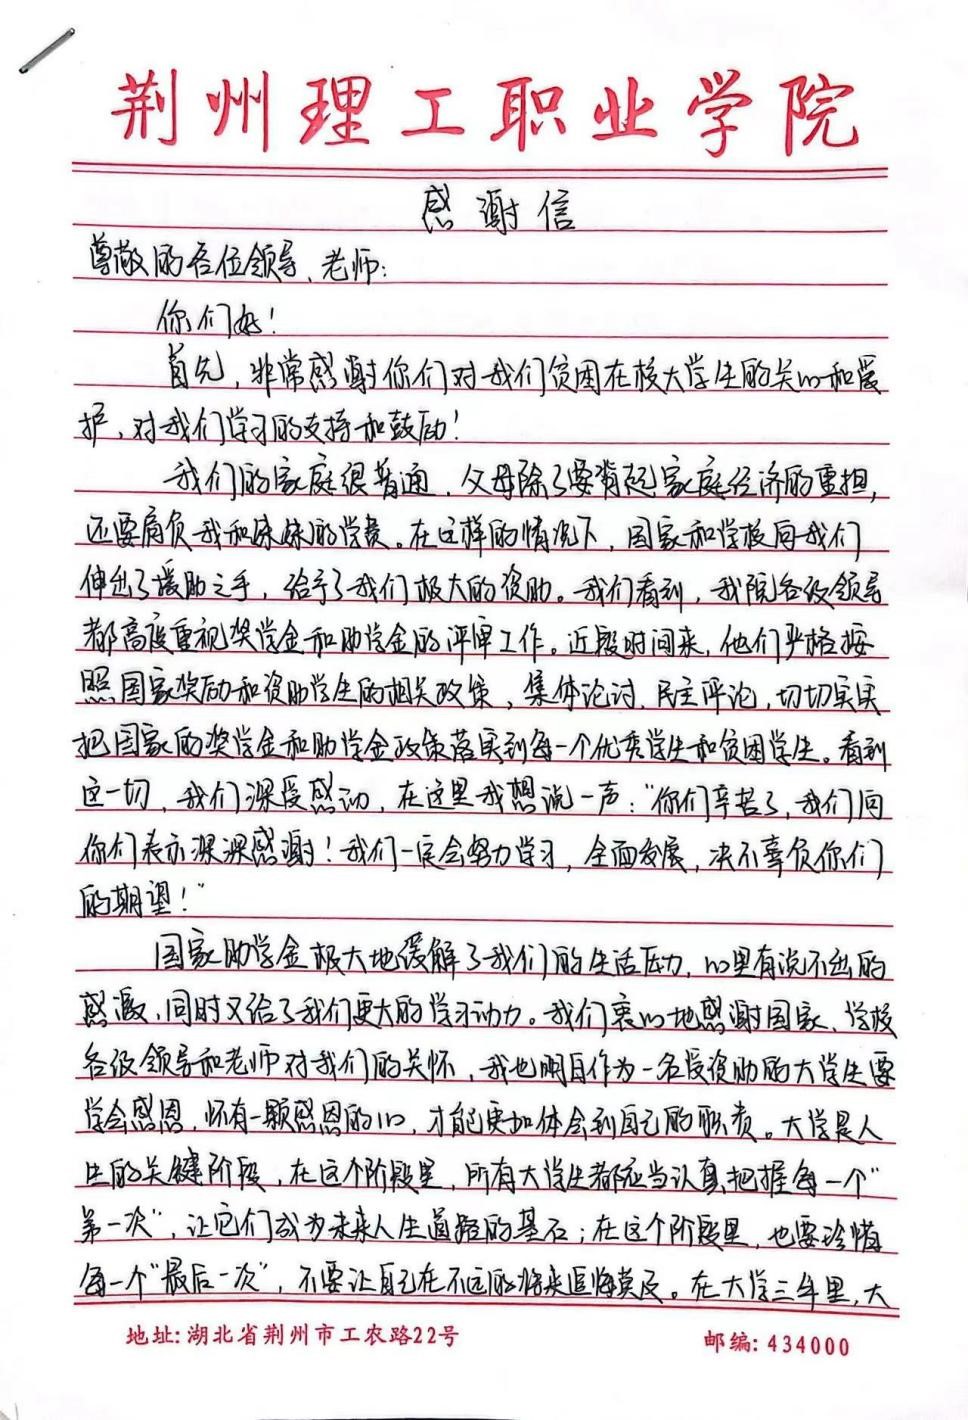 荆州理工职业学院
感谢信
尊敬的各位领导、老师：
你们好！
首先，非常感谢你们对我们贫困在校大学生的关心和爱
护，对我们学习的支持和鼓励！
我们的家庭很普通，父母除了要背起家庭经济的重担，
还要肩负我和妹妹的学费。在这样的情况下，国家和学校向我们
伸出了援助之手，给予了我们极大的资助。我们看到，我院各级领导
都高度重视奖学金和助学金的评审工作。近段时间来，他们严格按
照国家奖励和资助学生的相关政策，集体论讨，民主评论，切切实实
把国家的奖学金和助学金政策落实到每一个优秀学生和贫困学生。看到
这一切，我们深受感动，在这里我想说一声：“你们辛苦了，我们向
你们表示深深感谢！我们一定会努力学习，全面发展，决不辜负你们
的期望！”
国家助学金极大地缓解了我们的生活压力，心里有说不出的
感激，同时又给了我们更大的学习动力。我们衷心地感谢国家、学校
各级领导和老师对我们的关怀，我也明白作为一名受资助的大学生要
学会感恩，怀有一颗感恩的心，才能更加体会到自己的职责。大学是人
生的关键阶段，在这个阶段里，所有大学生都应当认真把握每一个“
第一次”，让它们成为未来人生道路的基石；在这个阶段里，也要珍惜
每一个“最后一次”，不要让自己在不远的将来追悔莫及。在大学三年里，大
地址：湖北省荆州市工农路22号
邮编：434000